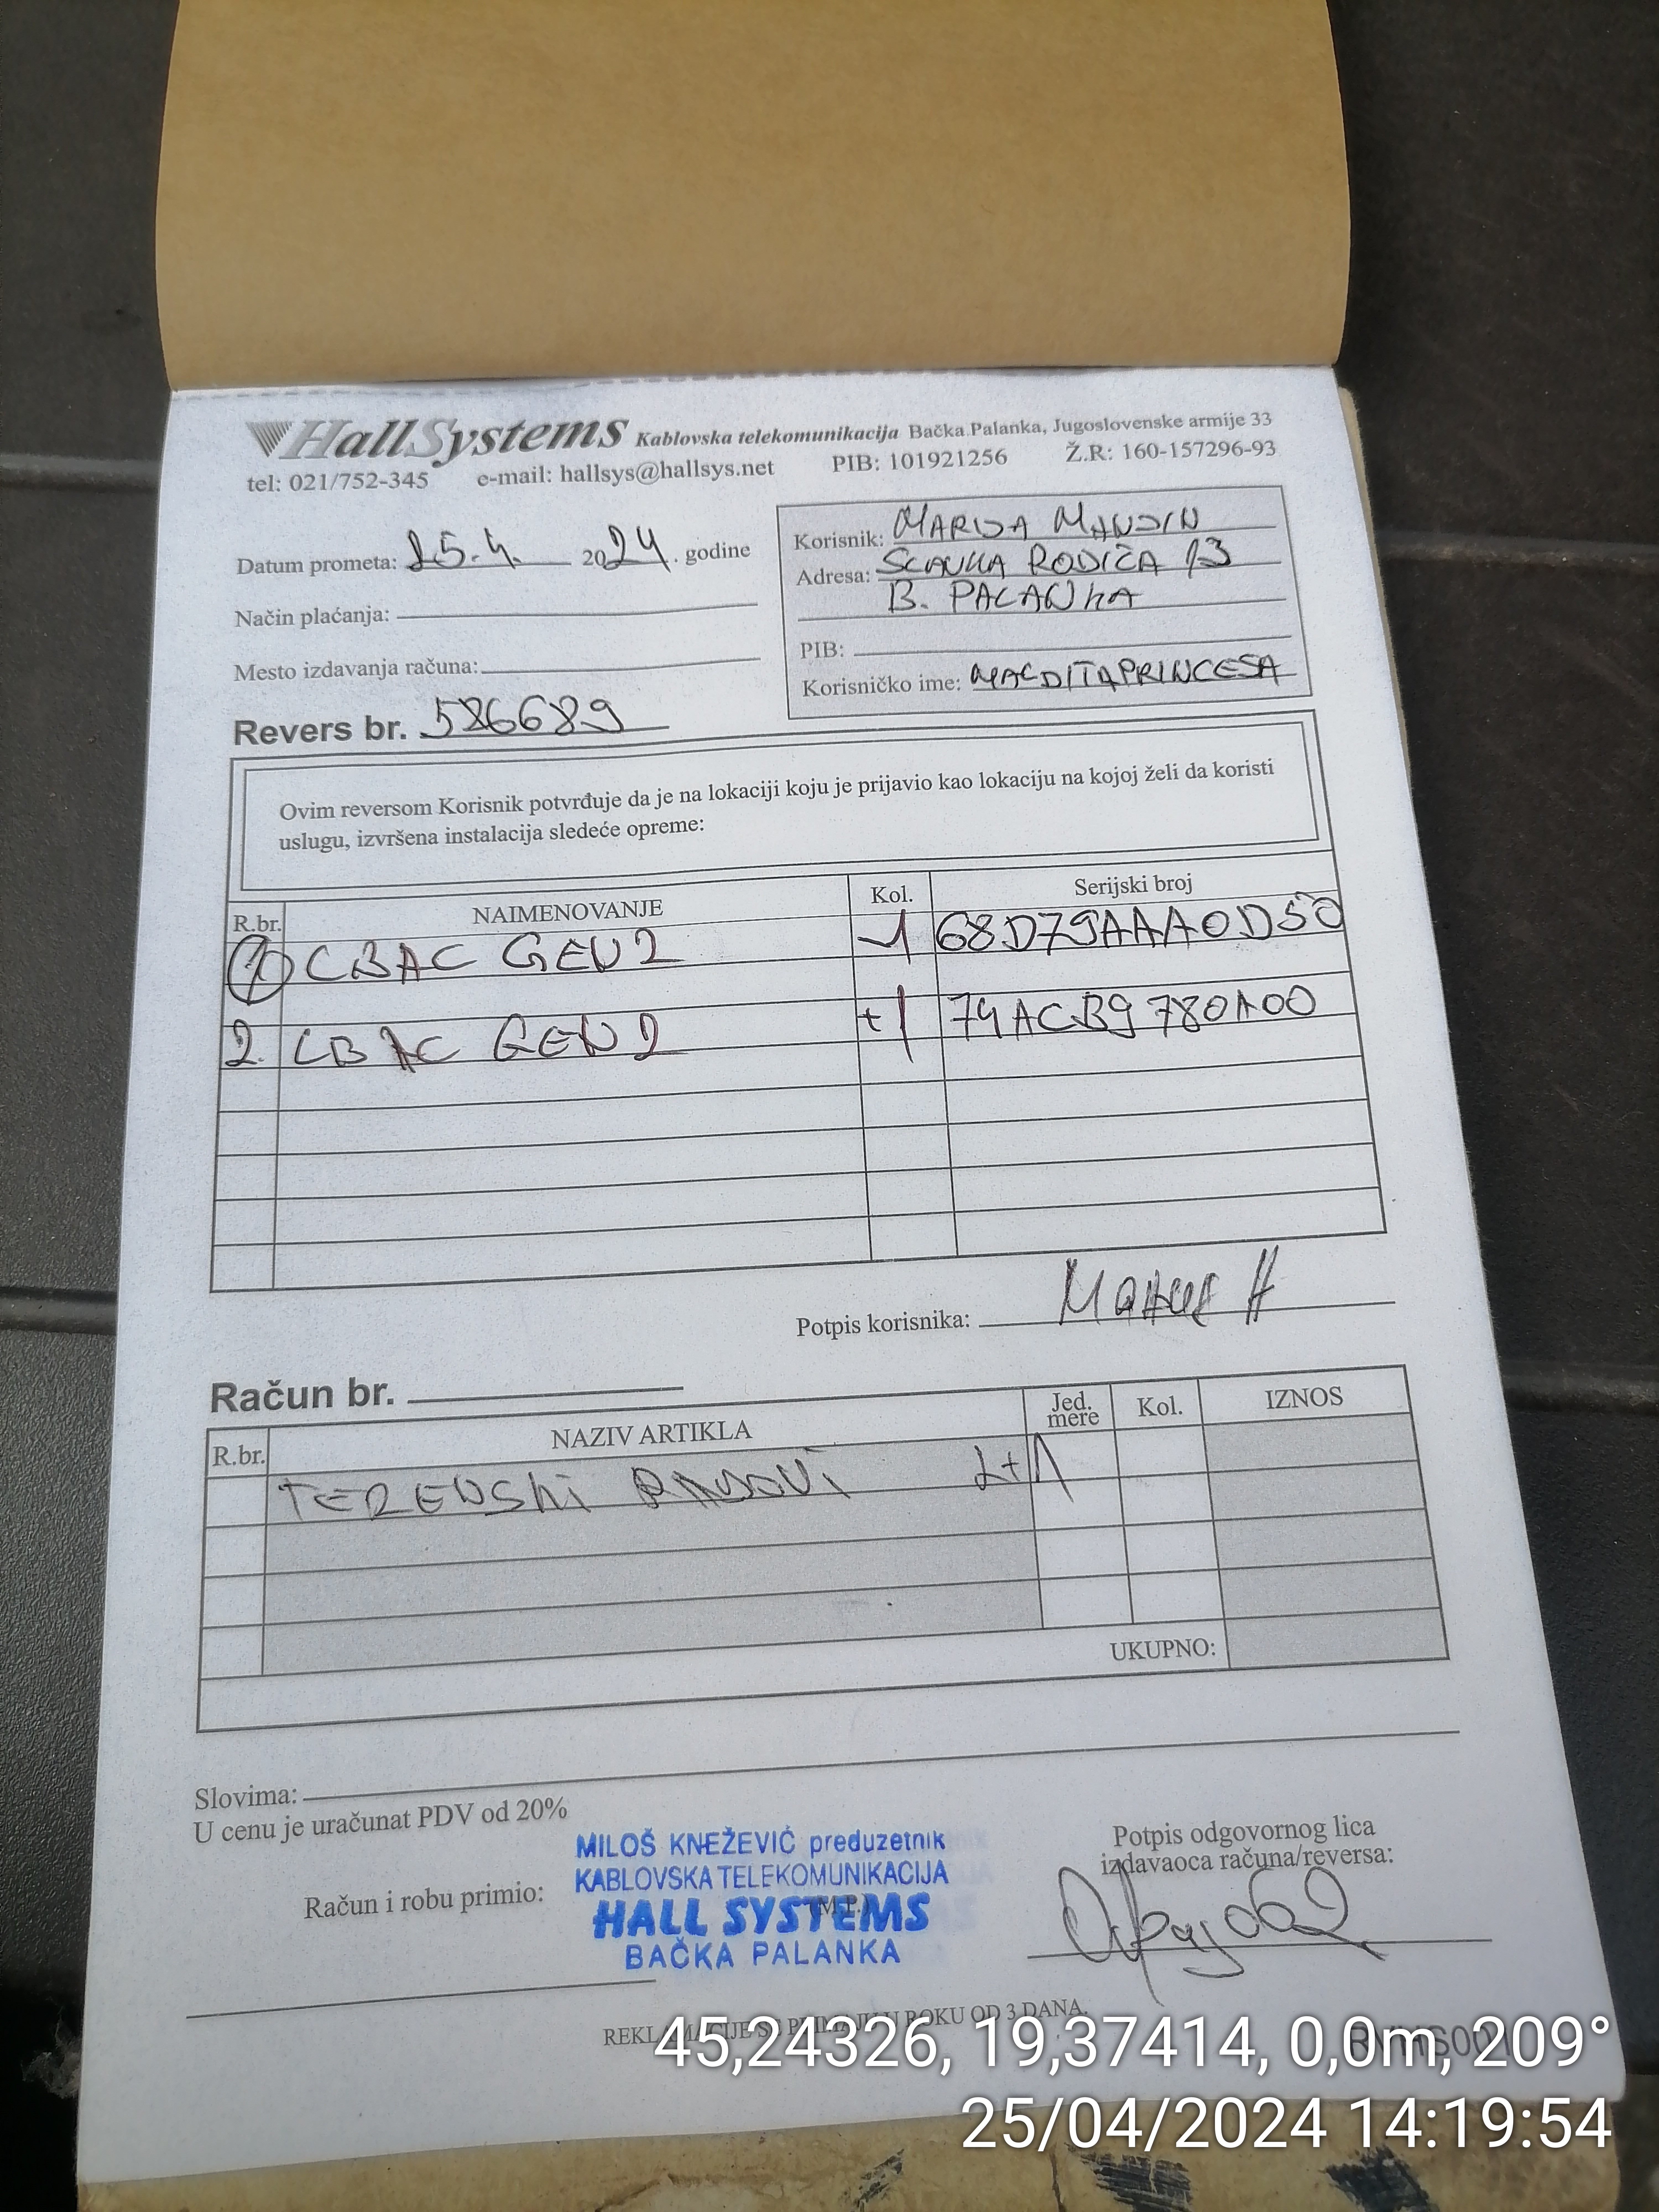 HallSystems Kablovska telekomunikacija Bačka Palanka, Jugoslovenske armije 33
tel: 021/752-345 e-mail: hallsys@hallsys.net PIB: 101921256 Ž.R: 160-157296-93
Datum prometa: 25.4. 2024. godine
Način plaćanja:
Mesto izdavanja računa:
Revers br. 586689
Korisnik: MARIJA MANDIN
Adresa: SLAVKA RODIĆA 13
B. PALANKA
PIB:
Korisničko ime: MALDITAPRINCESA
Ovim reversom Korisnik potvrđuje da je na lokaciji koju je prijavio kao lokaciju na kojoj želi da koristi
uslugu, izvršena instalacija sledeće opreme:
R.br. NAIMENOVANJE Kol. Serijski broj
1 CBAC GEN2 -1 68D79AAA0D50
2. CBAC GEN2 +1 74ACB9780A00
Potpis korisnika:
Račun br.
R.br. NAZIV ARTIKLA Jed. mere Kol. IZNOS
TERENSKI RADOVI 2+1
UKUPNO:
Slovima:
U cenu je uračunat PDV od 20%
Račun i robu primio:
MILOŠ KNEŽEVIĆ preduzetnik
KABLOVSKA TELEKOMUNIKACIJA
HALL SYSTEMS
BAČKA PALANKA
(M.P.)
Potpis odgovornog lica
izdavaoca računa/reversa:
REKLAMACIJE SE PRIMAJU U ROKU OD 3 DANA.
45,24326, 19,37414, 0,0m, 209°
25/04/2024 14:19:54